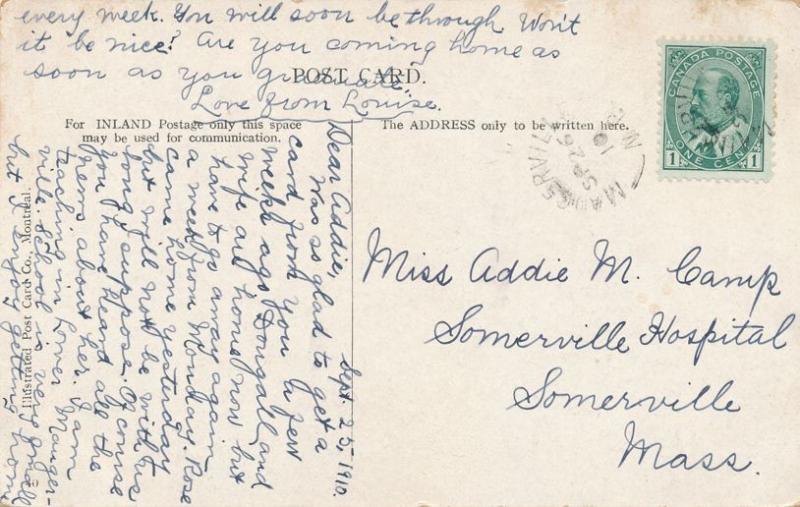 every week. You will soon be through Won't
it be nice? Are you coming home as
soon as you graduate.
Love from Louise.
POST CARD.
For INLAND Postage only this space
may be used for communication.
The ADDRESS only to be written here.
CANADA POSTAGE
ONE CENT
1 1
SP 26
10
Sept. 25, 1910.
Dear Addie,
Was so glad to get a
card from you a few
weeks ago. Dougall and
wife are home now but
have to go away again
a week from Monday. Rose
came home yesterday
but will not be with us
long I suppose. Of course
you have heard all the
news about her. I am
teaching in Lower Manger-
ville. School is very small
but I enjoy getting home
Illustrated Post Card Co., Montreal.
Miss Addie M. Camp
Somerville Hospital
Somerville
Mass.